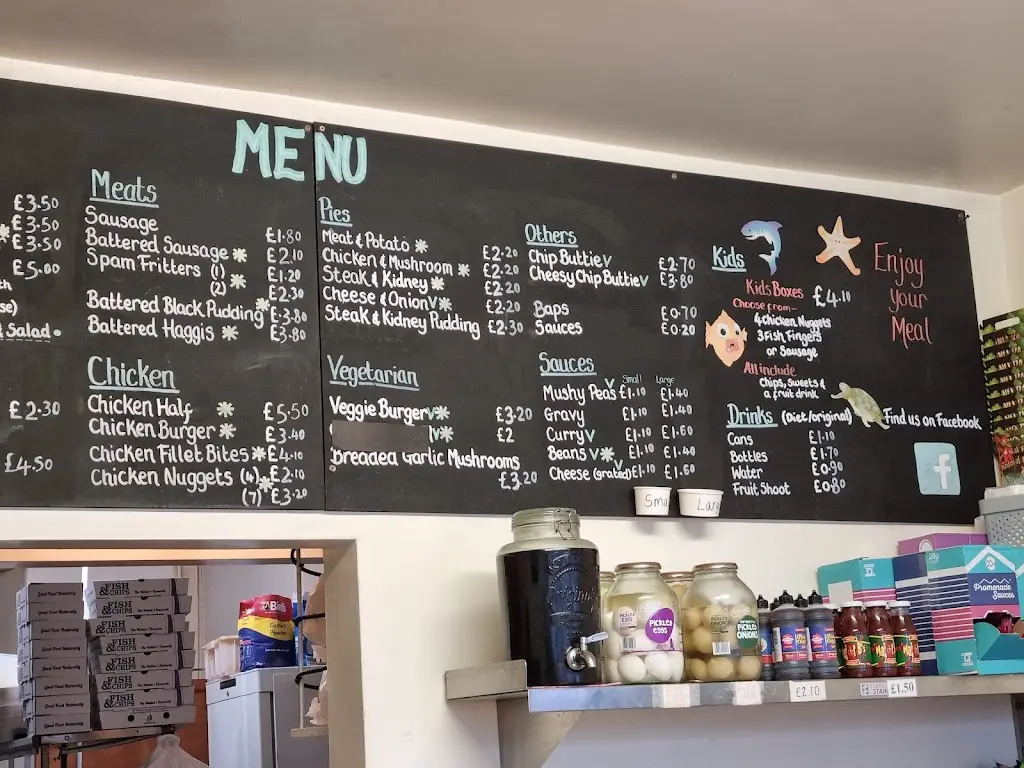 MENU
£3.50
£3.50
£3.50
£5.00
Salad
£2.30
£4.50
Meats
Sausage £1.80
Battered Sausage * £2.10
Spam Fritters (1) * £1.20
(2) £2.30
Battered Black Pudding * £3.80
Battered Haggis * £3.80
Chicken
Chicken Half * £5.50
Chicken Burger * £3.40
Chicken Fillet Bites * £4.10
Chicken Nuggets (4) * £2.10
(7) * £3.20
Pies
Meat & Potato * £2.20
Chicken & Mushroom * £2.20
Steak & Kidney * £2.20
Cheese & Onion V * £2.20
Steak & Kidney Pudding £2.30
Vegetarian
Veggie Burger V * £3.20
V * £2
Breaded Garlic Mushrooms
£3.20
Others
Chip Buttie V £2.70
Cheesy Chip Buttie V £3.80
Baps £0.70
Sauces £0.20
Sauces Small Large
Mushy Peas V £1.10 £1.40
Gravy £1.10 £1.40
Curry V £1.10 £1.60
Beans V * £1.10 £1.40
Cheese (grated) £1.10 £1.60
Kids
Kids Boxes £4.10
Choose from:-
4 Chicken Nuggets
3 Fish Fingers
or Sausage
All include
Chips, sweets &
a fruit drink
Drinks (Diet/original)
Cans £1.10
Bottles £1.70
Water £0.90
Fruit Shoot £0.80
Enjoy
your
Meal
Find us on Facebook
f
Sma
Larg
FISH
&CHIPS
FISH
&CHIPS
FISH
&CHIPS
FISH
&CHIPS
FISH
&CHIPS
FISH
&CHIPS
Good Food Naturally
Good Food Naturally
Good Food Naturally
Original
PICKLED
EGGS
PICKLED
ONIONS
Promenade
Sauces
£2.10
£1.50